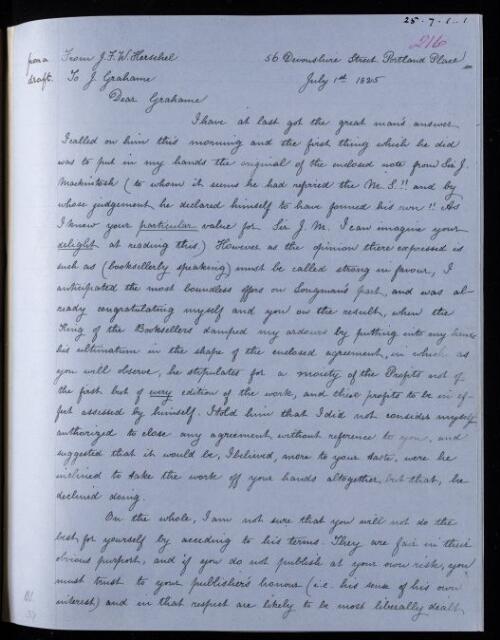 25-7-1-1
216
from a From J.F.W. Herschel 56 Devonshire Street Portland Place
draft. To J. Grahame July 1st 1825
Dear Grahame
I have at last got the great man's answer
I called on him this morning and the first thing which he did
was to put in my hands the original of the enclosed note from Sir J.
Mackintosh (to whom it seems he had referred the M.S.!! and by
whose judgement he declared himself to have formed his own!! As
I knew your particular value for Sir J. M. I can imagine your
delight at reading this) However as the opinion there expressed is
such as (booksellerly speaking) must be called strong in favour, I
anticipated the most boundless offers on Longman's part, and was al-
ready congratulating myself and you on the result, when the
King of the Booksellers damped my ardours by putting into my hands
his ultimatum in the shape of the enclosed agreement, in which as
you will observe, he stipulates for a moiety of the Profits not of
the first but of every edition of the work, and these profits to be in ef-
fect assessed by himself. I told him that I did not consider myself
authorized to close any agreement without reference to you, and
suggested that it would be, I believed, more to your taste, were he
inclined to take the work off your hands altogether, but that, he
declined doing.
On the whole, I am not sure that you will not do the
best for yourself by acceding to his terms. They are fair in their
obvious purport, and if you do not publish at your own risk, you
must trust to your publisher's honour (i.e. his sense of his own
interest) and in that respect are likely to be most liberally dealt